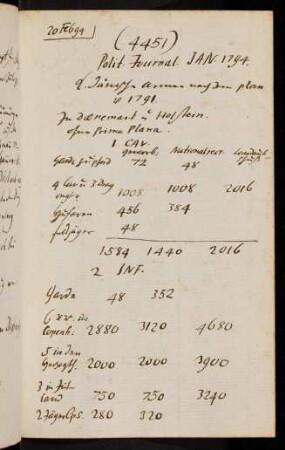 20 Feb 94
(4451)
Polit. Journal JAN. 1794.
d. Dänische Armee nach dem plan
v 1791.
In Dænemark u Holstein.
ohne prima plana.
1 CAV.
geworb. Nationalserv. Landaus
schuß
Garde zu pferd 72 48
4 Cav u 3 Drag
1008 1008 2016
Husaren 456 384
feldjäger 48
1584 1440 2016
2 INF.
Garde 48 352
6 in
Copenh. 2880 3120 4680
5 in den
Herzogth. 2000 2000 3900
3 in Jüt
land 750 750 3240
2 JägerCps. 280 320